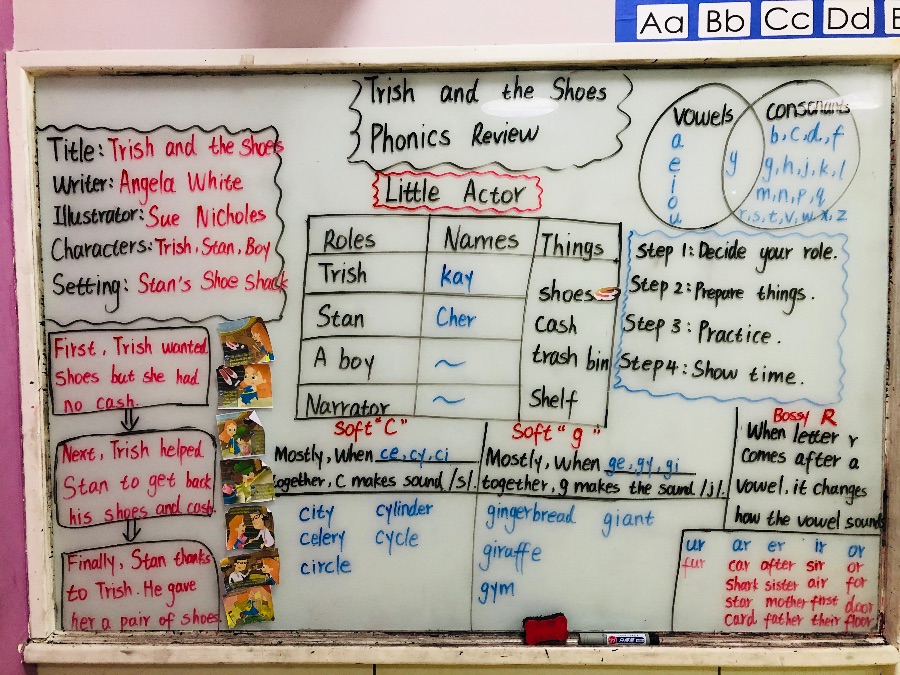 Aa Bb Cc Dd
Trish and the Shoes
Phonics Review
Little Actor
Title: Trish and the Shoes
Writer: Angela White
Illustrator: Sue Nicholes
Characters: Trish, Stan, Boy
Setting: Stan's Shoe Shack
First, Trish wanted
Shoes but she had
no cash.
Next, Trish helped
Stan to get back
his shoes and cash
Finally, Stan thanks
to Trish. He gave
her a pair of shoes
Roles Names Things
Trish kay
Stan Cher
A boy ~
Narrator ~
shoes
cash
trash bin
Shelf
vowels
a
e
i
o
u
y
consonants
b, c, d, f
g, h, j, k, l
m, n, p, q
r, s, t, v, w, x, z
Step 1: Decide your role.
Step 2: Prepare things.
Step 3: Practice.
Step 4: Show time.
Soft "C"
Mostly, When ce, cy, ci
together, C makes sound /s/.
city cylinder
celery cycle
circle
Soft "g"
Mostly, When ge, gy, gi
together, g makes the sound /j/.
gingerbread giant
giraffe
gym
Bossy R
When letter r
comes after a
vowel, it changes
how the vowel sound
ur ar er ir or
fur car after sir or
Shark sister air for
star mother first door
card father their floor